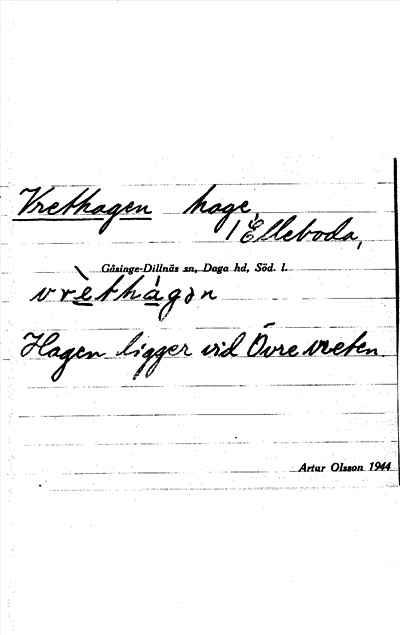 Vrethagen hage,
/ Elleboda,
Gåsinge-Dillnäs sn, Daga hd, Söd. l.
vrèthàgən
Hagen ligger vid Övre vreten.
Artur Olsson 1944